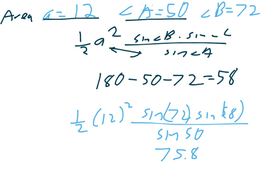 Area a=12 ∠A=50 ∠B=72
1/2 a² sin∠B · sin∠C / sin∠A
180-50-72=58
1/2 (12)² sin(72) sin(58) / sin 50
75.8